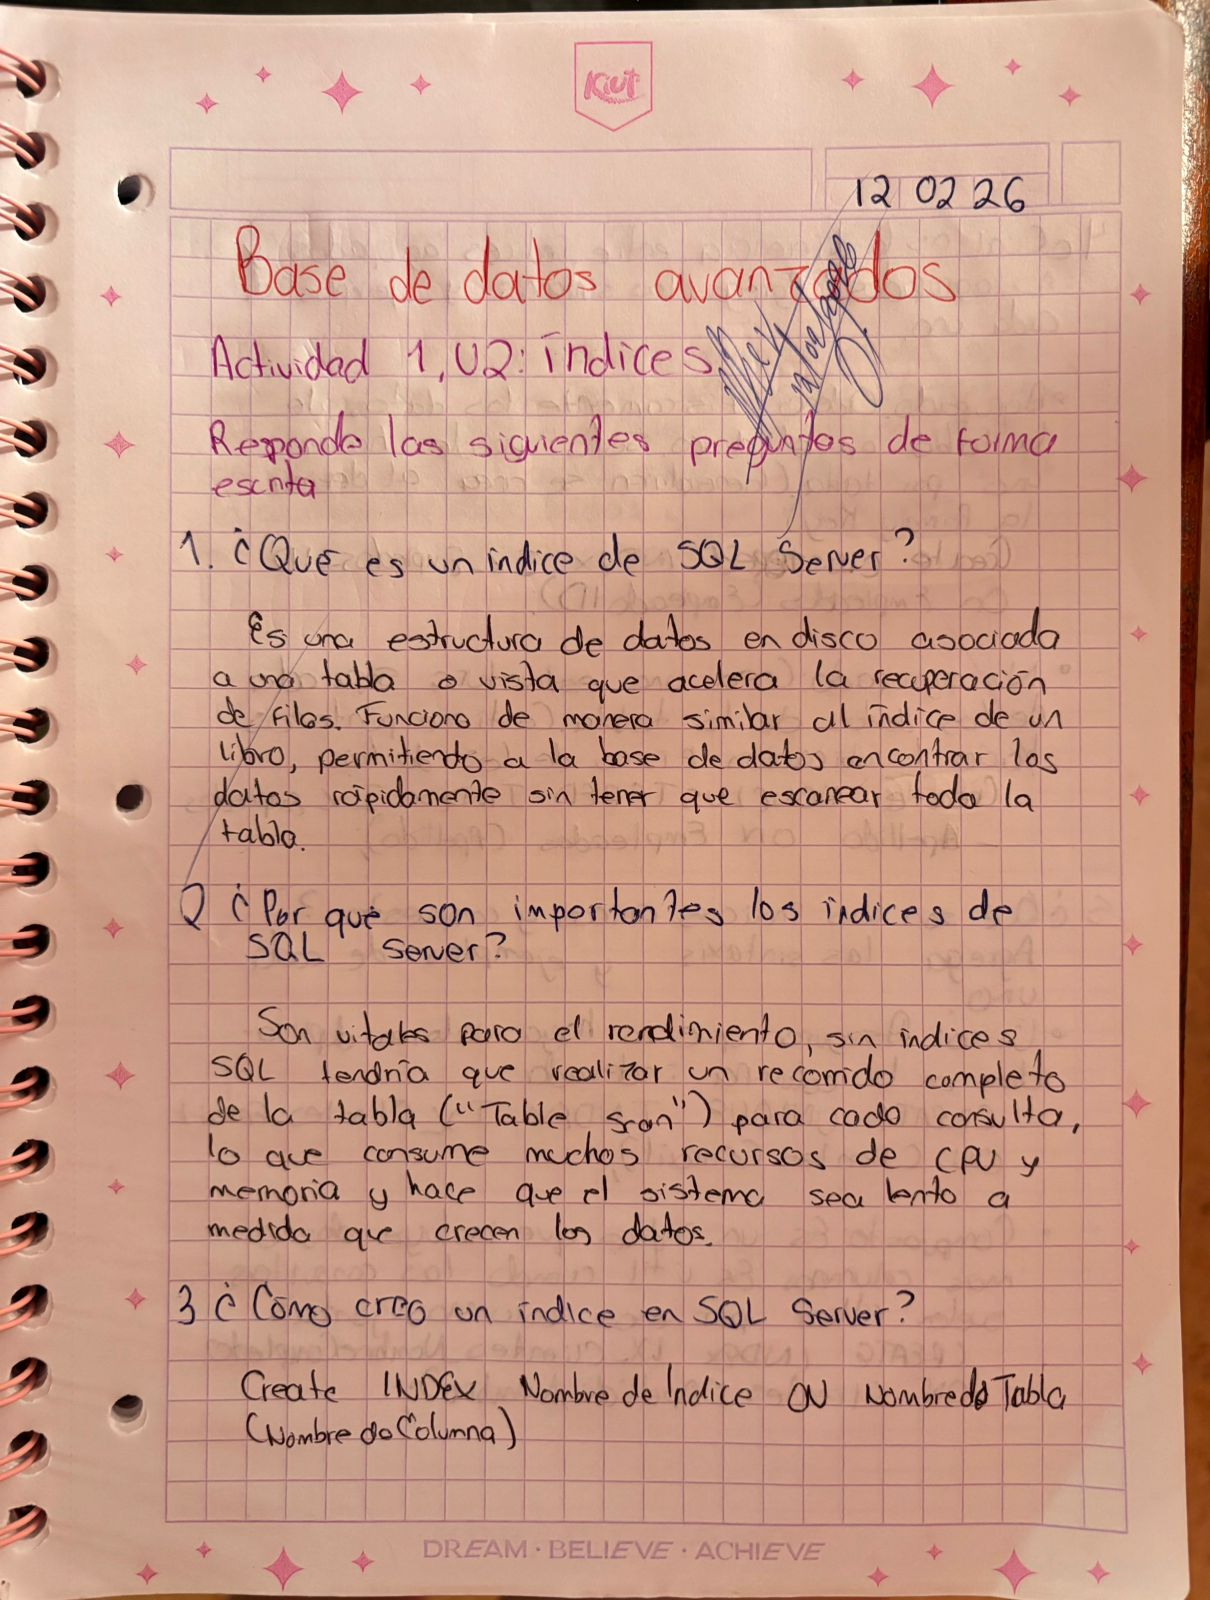 Kiut
12 02 26
Base de datos avanzados
Actividad 1, U2: índices
Responde las siguientes preguntas de forma
escrita
1. ¿Qué es un índice de SQL Server?
Es una estructura de datos en disco asociada
a una tabla o vista que acelera la recuperación
de filas. Funciona de manera similar al índice de un
libro, permitiendo a la base de datos encontrar los
datos rápidamente sin tener que escanear toda la
tabla.
2 ¿Por qué son importantes los índices de
SQL Server?
Son vitales para el rendimiento, sin índices
SQL tendría que realizar un recorrido completo
de la tabla ("Table scan") para cada consulta,
lo que consume muchos recursos de CPU y
memoria y hace que el sistema sea lento a
medida que crecen los datos.
3 ¿Cómo creo un índice en SQL Server?
Create INDEX Nombre de Indice ON Nombre de Tabla
(Nombre de Columna)
DREAM · BELIEVE · ACHIEVE